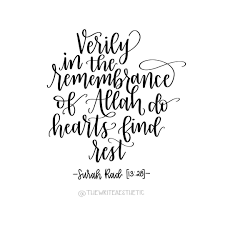 Verily
in the
remembrance
of Allah do
hearts find
rest
-Surah Rad [13:28]-
@THEWRITEAESTHETIC